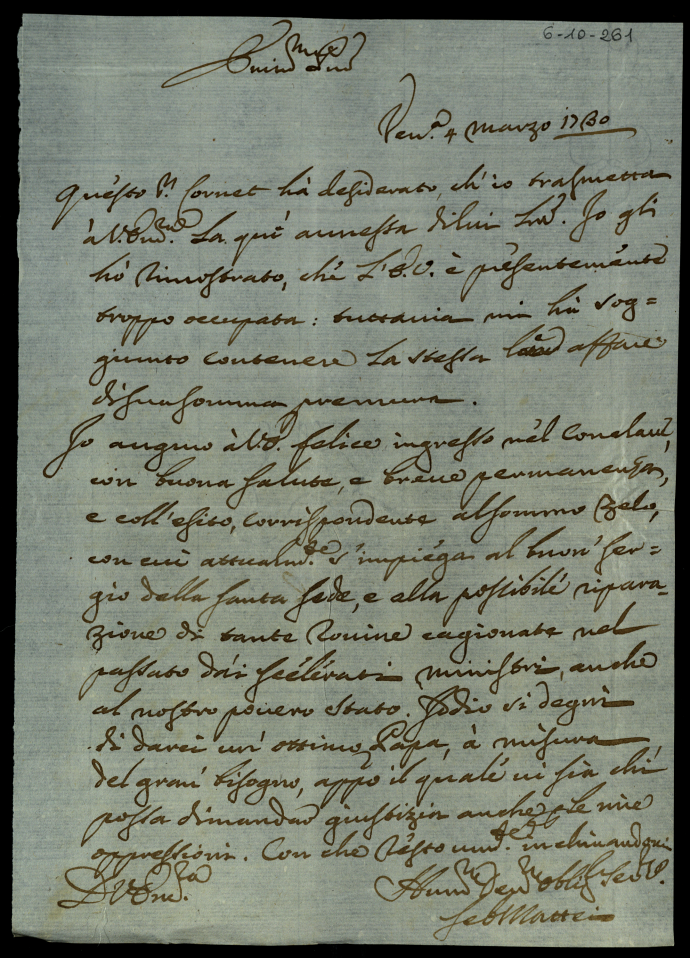 6-10-261
Em.mo Sig.re
Ven.a 4 Marzo 1730
Questo Sr. Cornet hà desiderato, ch'io trasmetta
à V. Em.za la quì annessa di lui Lra. Io gli
hò rimostrato, che L'E.V. è presentemente
troppo occupata: tuttavia mi hà sog=
giunto contenere la stessa affare
di sua somma premura.
Io auguro à V.E. felice ingresso nel Conclave,
con buona salute, e breve permanenza,
e coll'esito, corrispondente al sommo zelo,
con cui attualm.te s'impiega al buon ser=
gio della Santa Sede, e alla possibile ripara=
zione di tante rovine cagionate nel
passato dai scelerati ministri, anche
al nostro povero stato. Iddio si degni
di darci un' ottimo Papa, à misura
del gran' bisogno, appò il quale vi sia chi
possa dimandar giustizia anche le mie
oppressioni. Con che resto um.te inchinandomi
D V Em.za
Hum.mo Dev.mo Oblig. Ser.
Seb Mattei